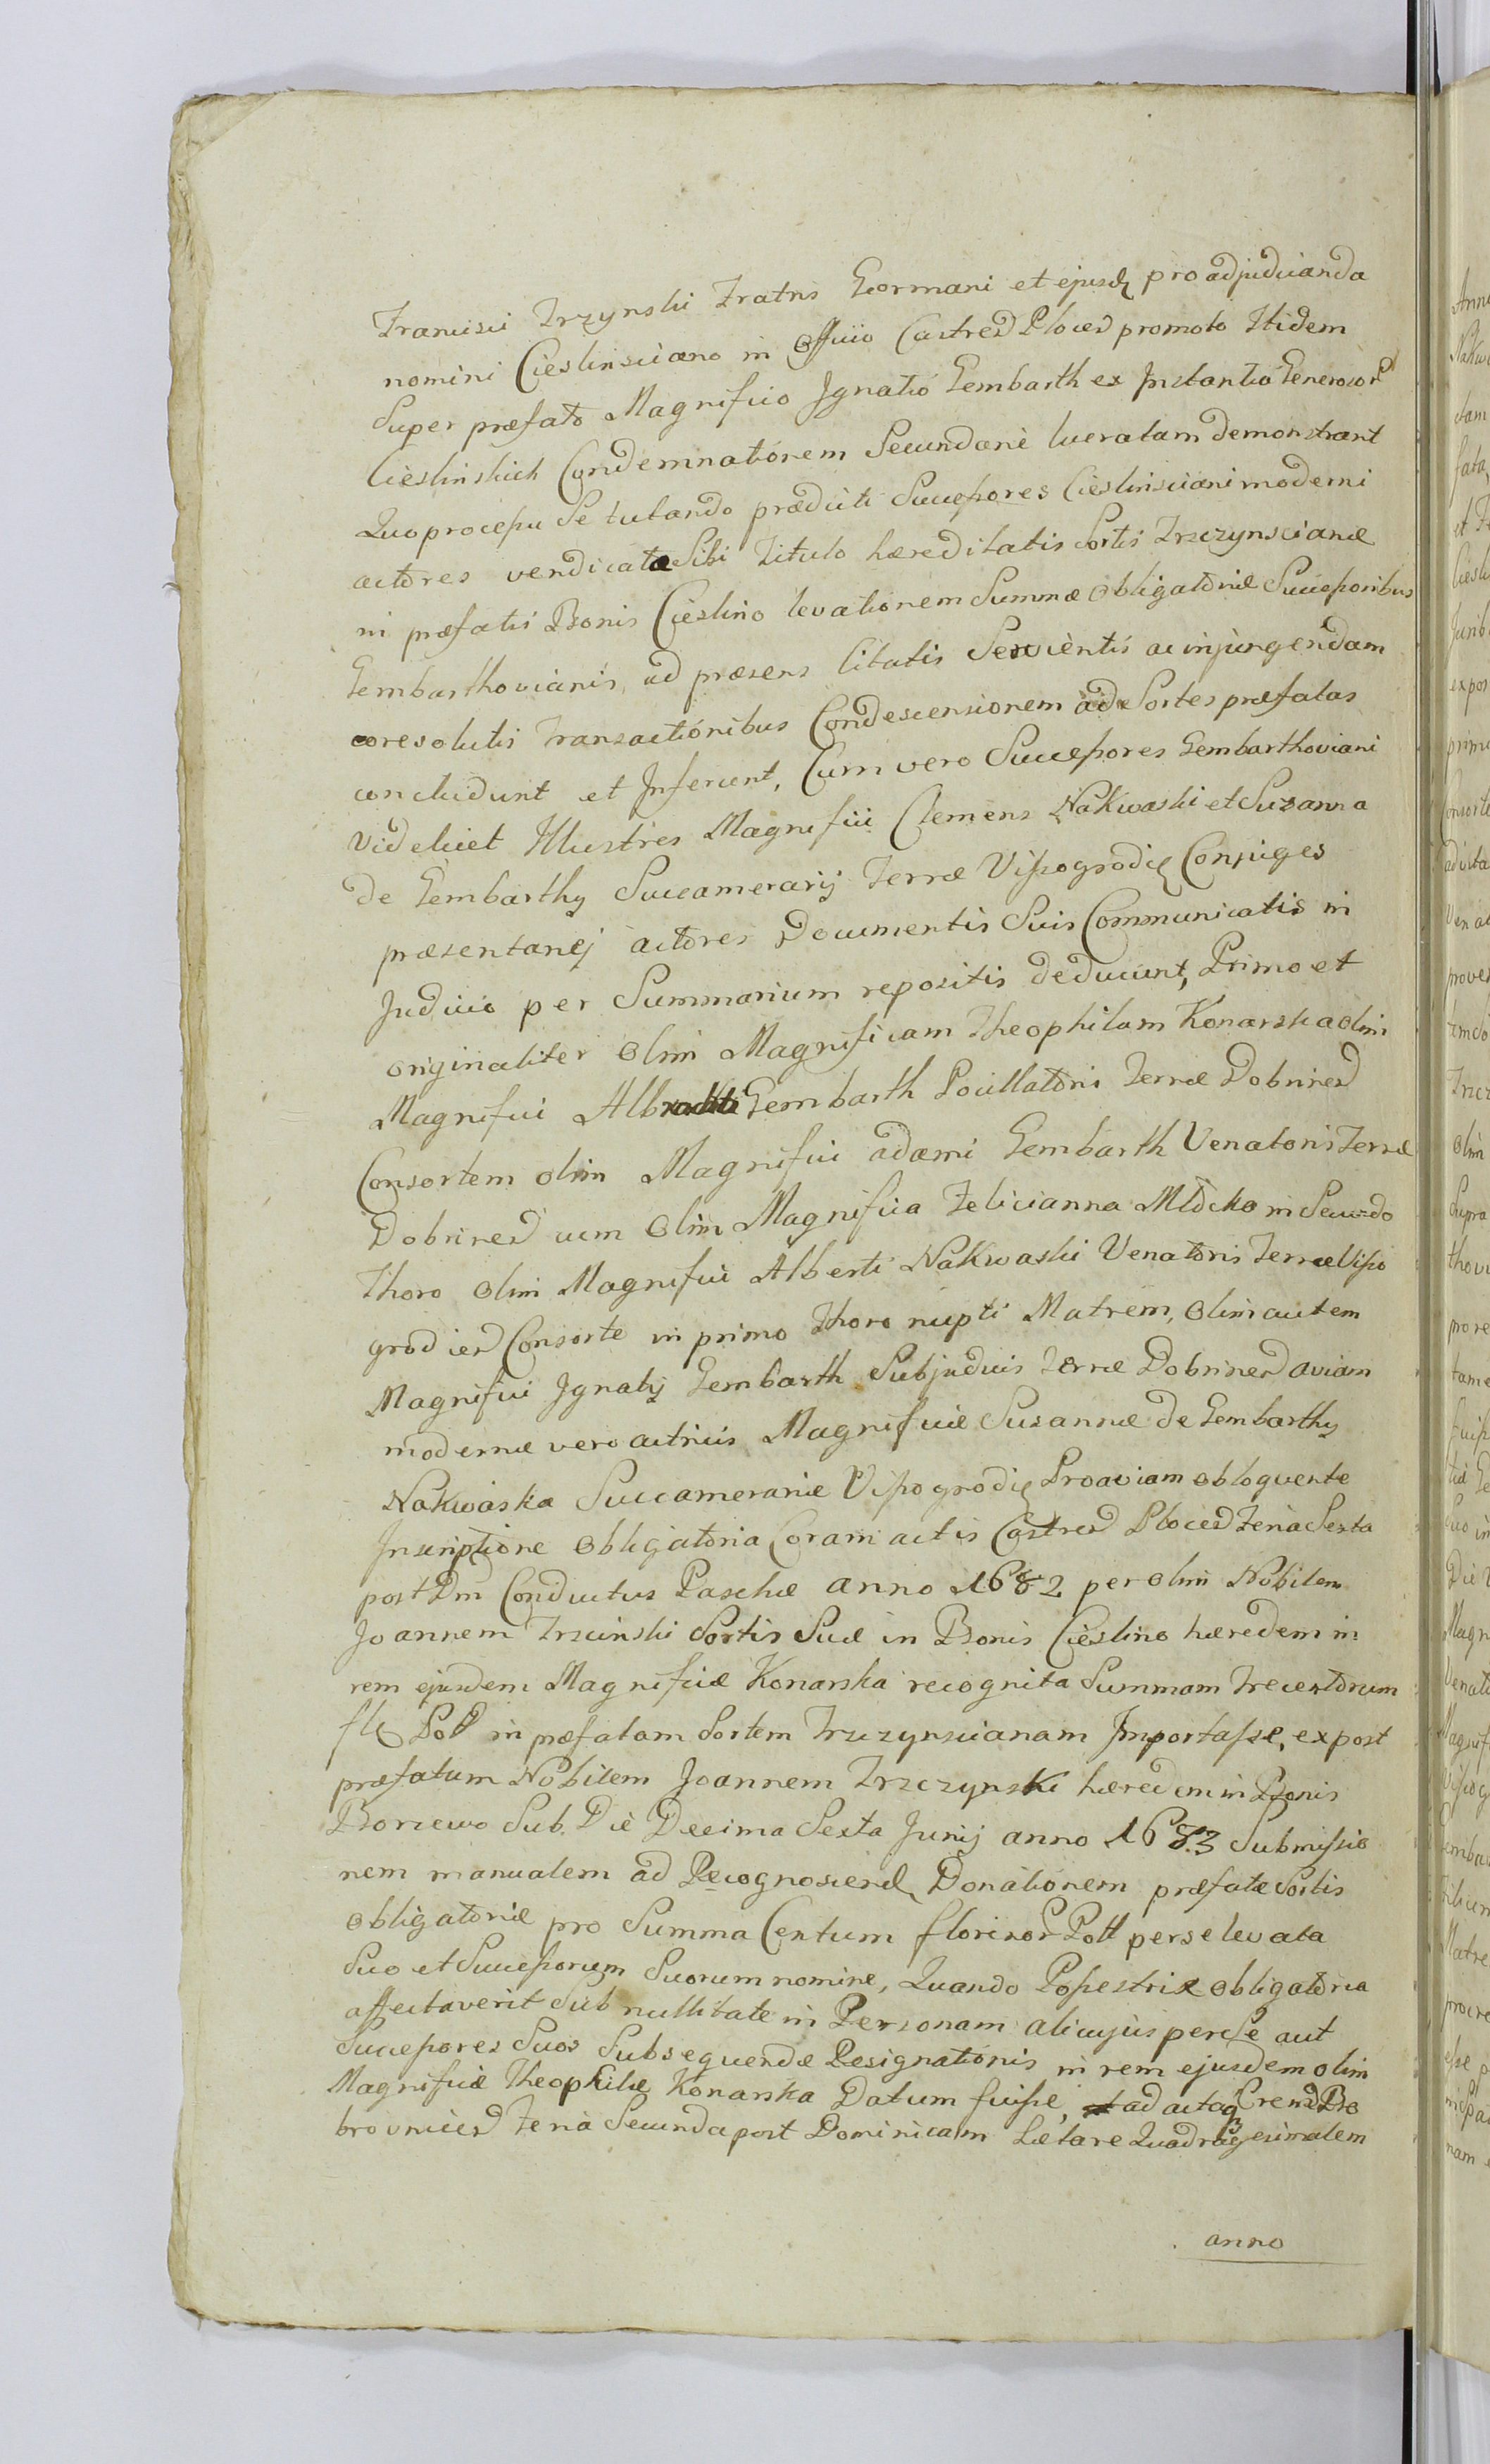 Francisci Trzynski Fratris Germani et ejusd pro adjudicanda
nomini Cieslinsciano in Officio Castren Plocen promoto Itidem
Super præfato Magnifico Ignatio Gembarth ex Instantia Generosor
Cieslinskich Condemnationem Secundarie lucratam demonstrant
Quo processu Se tutando prædicti Successores Cieslinsciani moderni
actores vendicatæ Sibi Titulo hæreditatis Sortis Trzczynscianæ
in præfatis Bonis Cieslino levationem Summæ Obligatoriæ Successoribus
Gembarthovianis ad præsens Citatis Servientis ac injungendam
resolutis Transactionibus Condescensionem de Sortes præfatas
concludunt et Inferunt, Cum vero Successores Gembarthoviani
videlicet Illustres Magnifici Clemens Nakwaski et Suzanna
de Gembarthy Succamerarij Terræ Vissogrodien Conjuges
præsentanej actores Documentis Suis Communicatis in
Judicio per Summarium repositis deducunt, Primo et
originaliter Olim Magnificam Theophilam Konarska olim
Magnifici Gembarth Pocillatoris Terræ Dobrinen
Consortem olim Magnifici adami Gembarth Venatoris Terræ
Dobrinen cum Olim Magnifica Felicianna Mlocka in Secundo
Thoro Olim Magnifici Alberti Nakwaski Venatoris Terræ Visso
grodien Consorte in primo Thoro nupti Matrem, Olim autem
Magnifici Ignatij Gembarth Subjudicis Terræ Dobrinen aviam
modernæ vero actricis Magnificæ Suzannæ de Gembarthy
Nakwaska Succamerariæ Vissogrodien Proaviam obloquente
Inscriptione Obligatoria Coram actis Castren Plocen Feria Sexta
post Dm Conductus Paschæ anno 1682 per olim Nobilem
Joannem Trzcinski Sortis Suæ in Bonis Cieslino hæredem in
rem ejusdem Magnificæ Konarska recognita Summam Trecentorum
fl Pol in præfatam Sortem Trzczynscianam Importasse, ex post
præfatum Nobilem Joannem Trzczynski hæredem in Bonis
Borzewo Sub Die Decima Sexta Junij anno 1683 Submissio
nem manualem ad Recognoscend Donationem præfatæ Sortis
obligatoriæ pro Summa Centum florenor Poll per se levata
Suo et Successorum Suorum nomine, Quando Possestrix obligatoria
affectaverit Sub nullitate in Personam alicujus per Se aut
Successores Suos Subsequendæ Resignationis in rem ejusdem olim
Magnificæ Theophilæ Konarska Datum fuisse, ad acta Bo
brovnicen Feria Secunda post Dominicam Lætare Quadragesimalem
anno